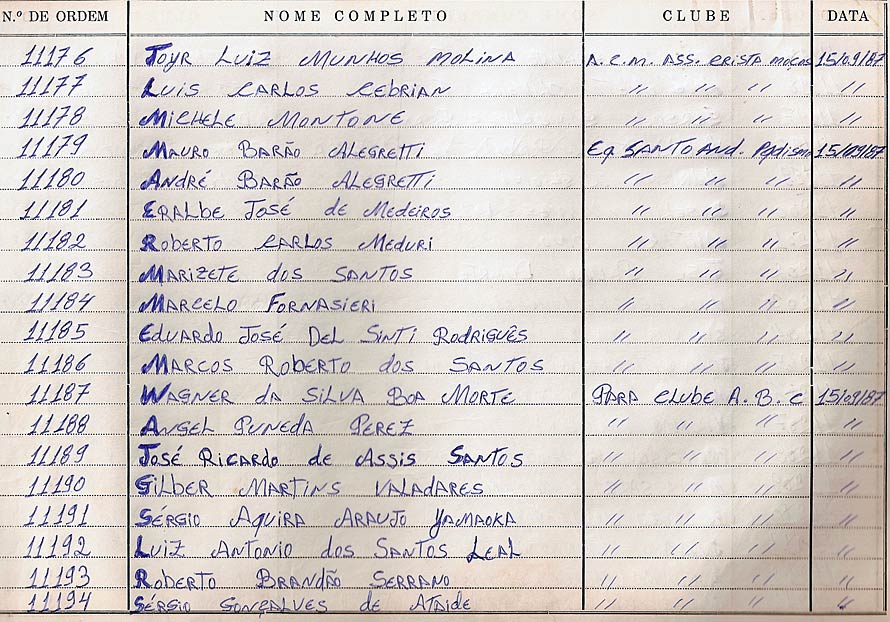 N.º DE ORDEM NOME COMPLETO CLUBE DATA
11176 Joyr Luiz Munhos Molina A.C.M. Ass. Cristã Moços 15/09/87
11177 Luis Carlos Cebrian " " " "
11178 Michele Montone " " " "
11179 Mauro Barão Alegretti Eq. Santo And. Pedismo 15/09/87
11180 André Barão Alegretti " " " "
11181 Eralbe José de Medeiros " " " "
11182 Roberto Carlos Meduri " " " "
11183 Marizete dos Santos " " " "
11184 Marcelo Fornasieri " " " "
11185 Eduardo José Del Sinti Rodriguês " " " "
11186 Marcos Roberto dos Santos " " " "
11187 Wagner da Silva Boa Morte Para Clube A.B.C 15/09/87
11188 Angel Puneda Perez " " " "
11189 José Ricardo de Assis Santos " " " "
11190 Gilber Martins Valadares " " " "
11191 Sérgio Aquira Araujo Yamaoka " " " "
11192 Luiz Antonio dos Santos Leal " " " "
11193 Roberto Brandão Serrano " " " "
11194 Sérgio Gonçalves de Ataide " " " "